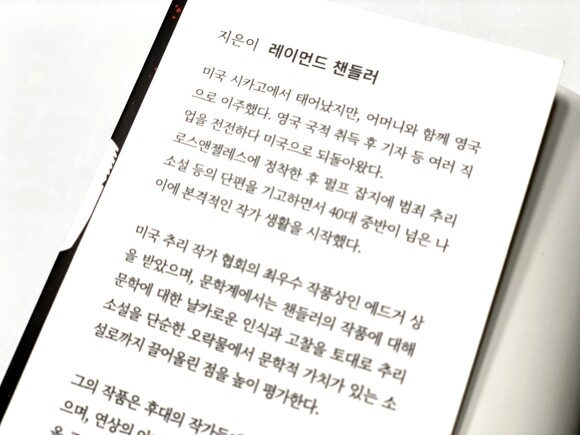 지은이 레이먼드 챈들러
미국 시카고에서 태어났지만, 어머니와 함께 영국
으로 이주했다. 영국 국적 취득 후 기자 등 여러 직
업을 전전하다 미국으로 되돌아왔다.
로스앤젤레스에 정착한 후 펄프 잡지에 범죄 추리
소설 등의 단편을 기고하면서 40대 중반이 넘은 나
이에 본격적인 작가 생활을 시작했다.
미국 추리 작가 협회의 최우수 작품상인 에드거 상
을 받았으며, 문학계에서는 챈들러의 작품에 대해
문학에 대한 날카로운 인식과 고찰을 토대로 추리
소설을 단순한 오락물에서 문학적 가치가 있는 소
설로까지 끌어올린 점을 높이 평가한다.
그의 작품은 후대의 작가들
으며, 연상의